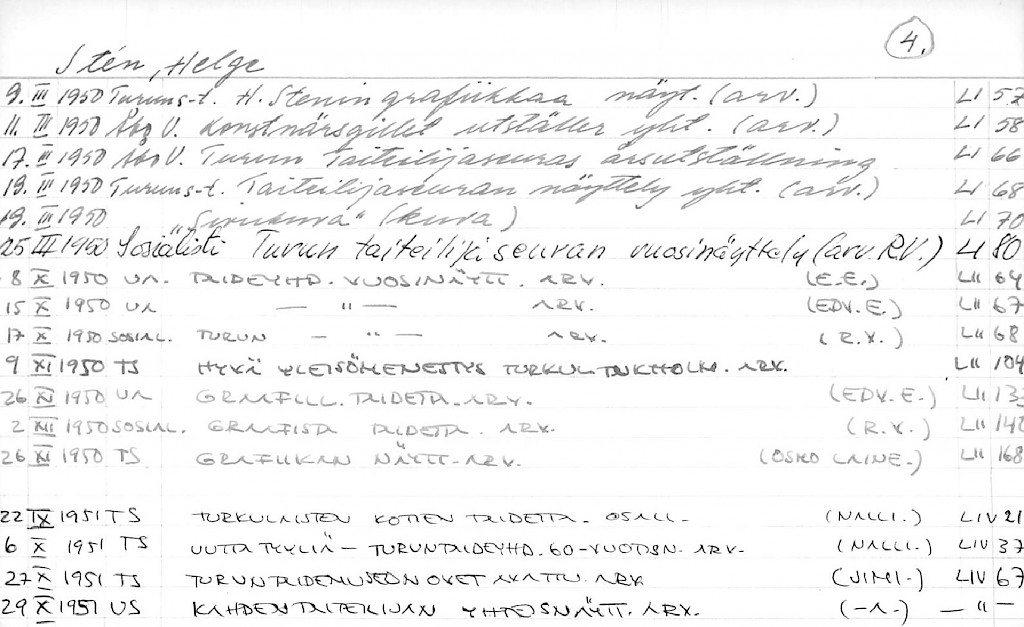 4.
Stén, Helge
9. III 1950 Turuns-t. H. Stenin grafiikkaa näyt. (arv.) LI 57
11. III 1950 Åbo U. Konstnärsgillet utställer yht. (arv.) LI 58
17. III 1950 Åbo U. Turun Taiteilijaseuras årsutställning LI 66
19. III 1950 Turuns-t. Taiteilijaseuran näyttely yht. (arv.) LI 68
19. III 1950 (kuva) LI 70
25 III 1950 Sosialisti Turun taiteilijaseuran vuosinäyttely (arv. R.V.) LI 80
8 X 1950 UA TAIDEYHD. VUOSINÄYTT. ARV. (E.E.) LII 64
15 X 1950 UA — " — ARV. (EDV. E.) LII 67
17 X 1950 SOSIAL. TURUN — " — ARV. (R.V.) LII 68
9 XI 1950 TS HYVÄ YLEISÖMENESTYS ARV. LII 104
26 XI 1950 UA GRAFILL. TAIDETTA. ARV. (EDV. E.) LII
2 XII 1950 SOSIAL. GRAFISTA TAIDETTA. ARV. (R.V.) LII 140
26 XI 1950 TS GRAFIIKAN NÄYTT. ARV. (OSMO LAINE.) LII 168
22 IX 1951 TS TURKULAISTEN KOTIEN TAIDETTA. OSALL. (NALLI.) LIV 21
6 X 1951 TS UUTTA TYYLIÄ – TURUN TAIDEYHD. 60-VUOTISN. ARV. (NALLI.) LIV 37
27 X 1951 TS TURUN TAIDEMUSEON OVET AVATTU. ARV. (JIMI.) LIV 67
29 X 1951 US KAHDEN TAITEILIJAN YHTEISNÄYTT. ARV. (-A.) — " —